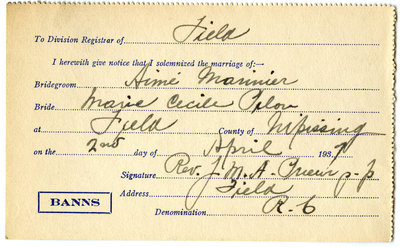 To Division Registrar of Field
I herewith give notice that I solemnized the marriage of:—
Bridegroom Aimé Marinier
Bride Marie Cecile Pilon
at Field County of Nipissing
on the 2nd day of April 1937
Signature Rev. J. M. A. p-p
Address Field
BANNS
Denomination R-C